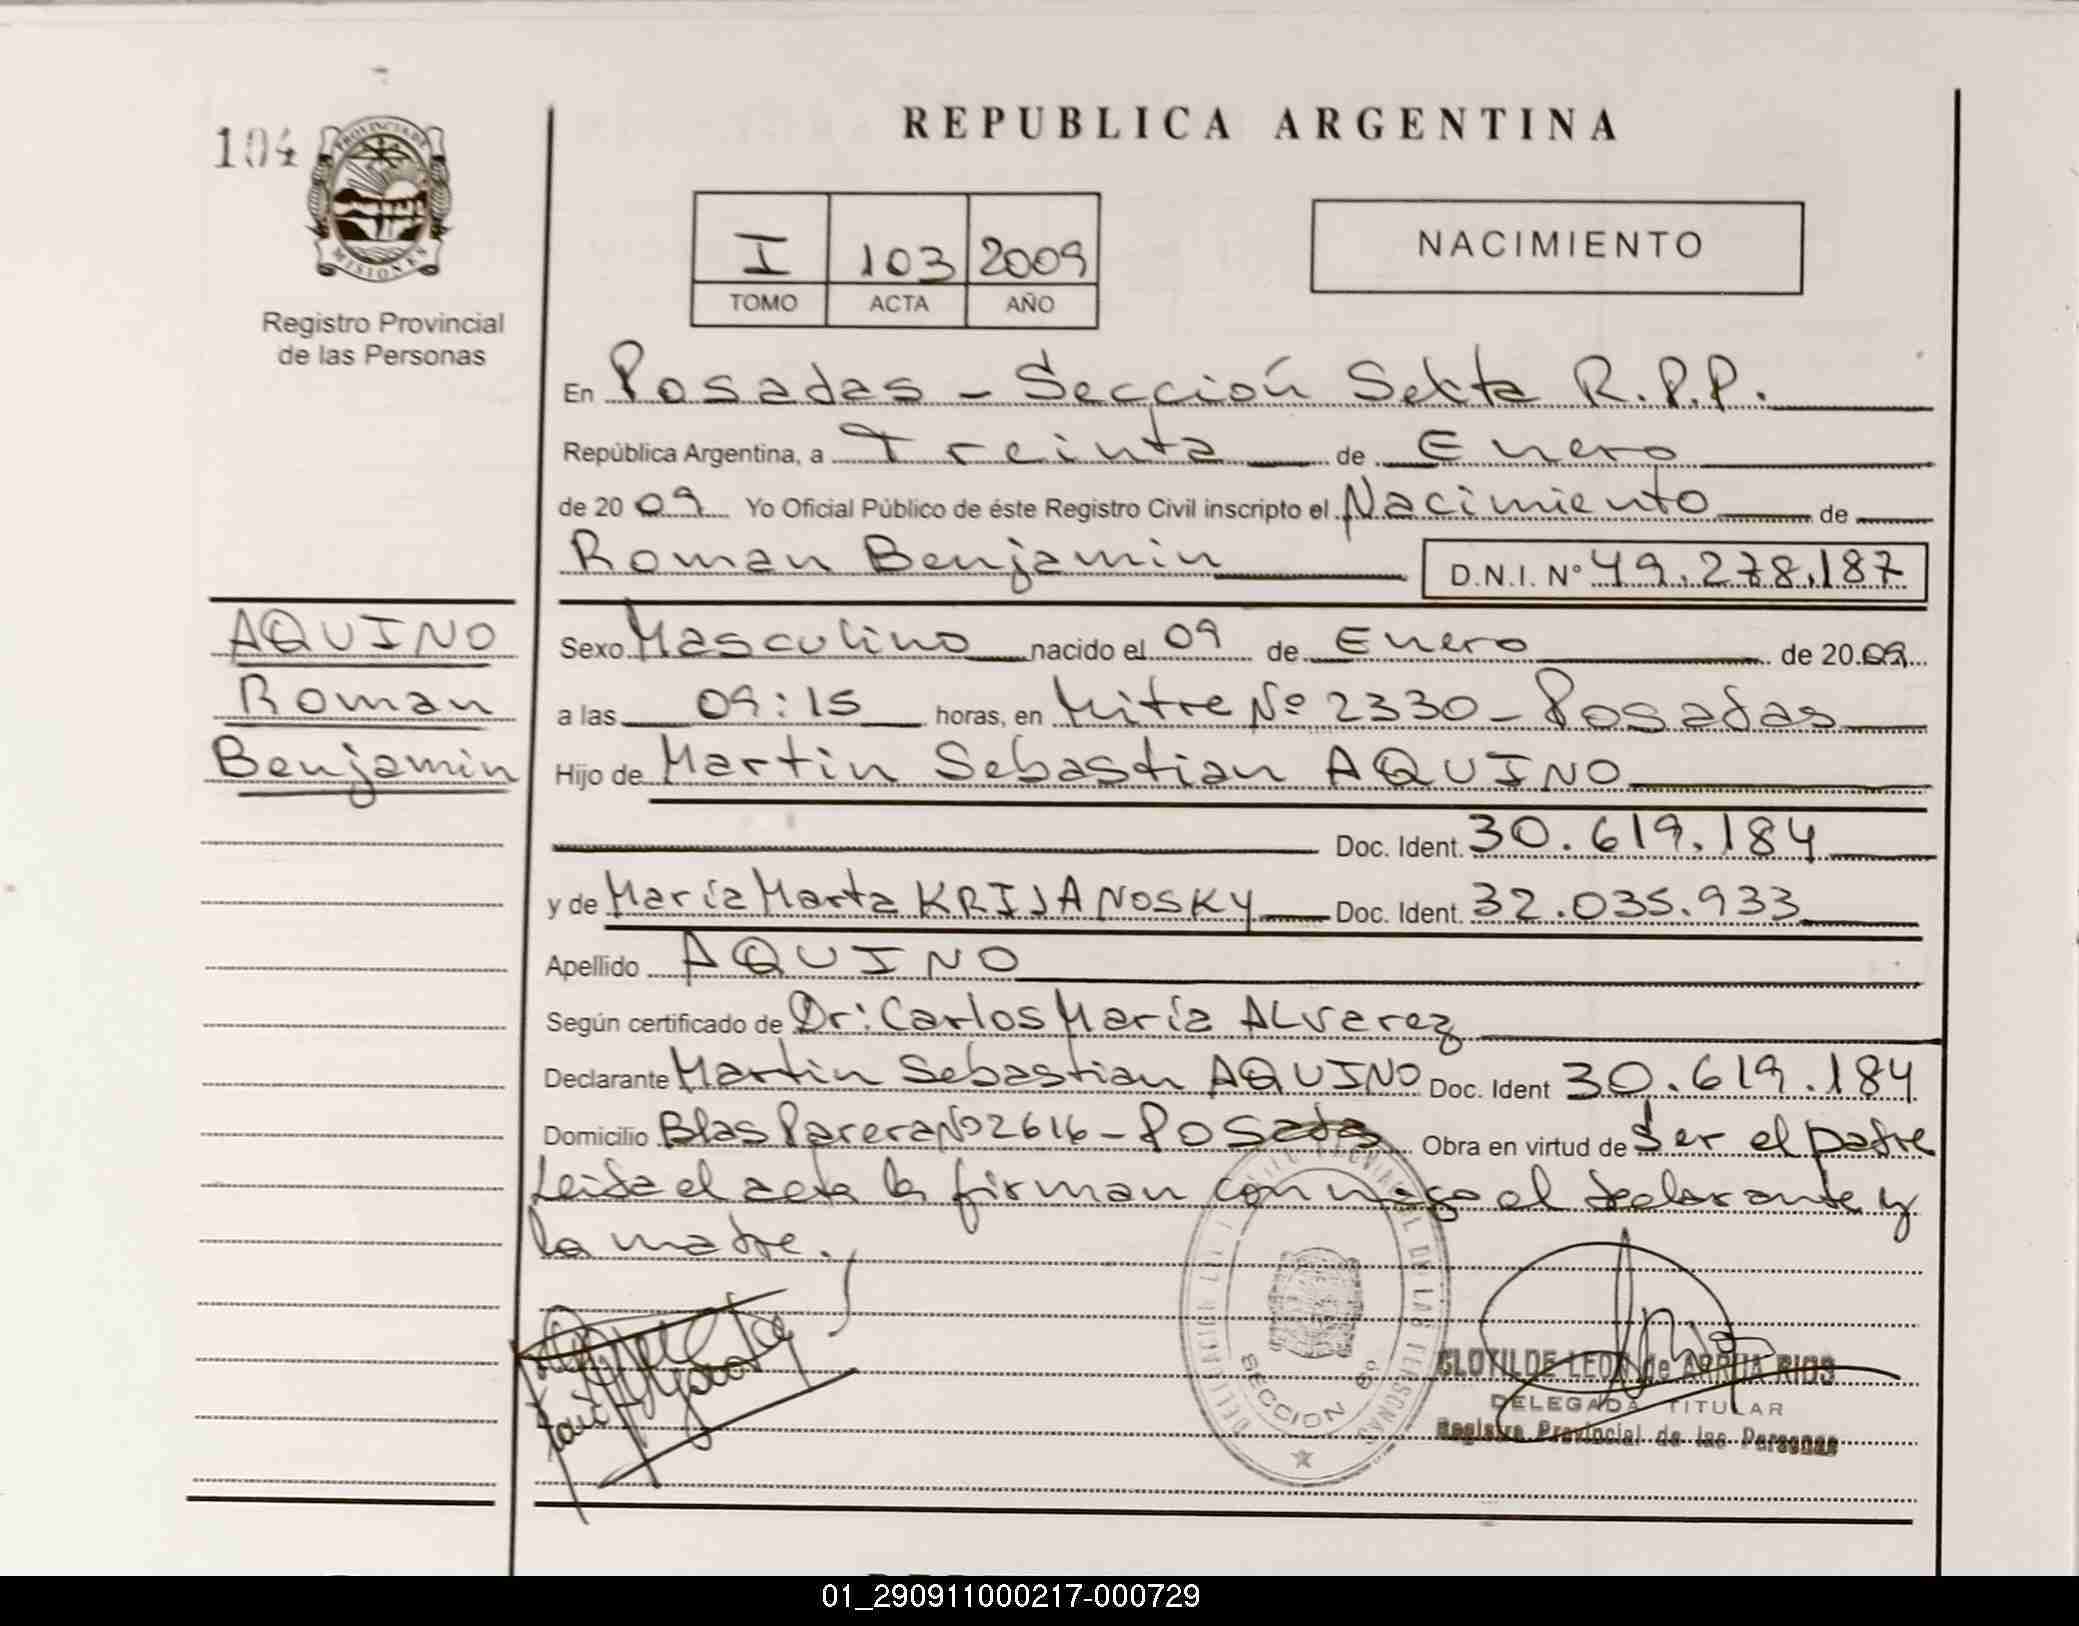 REPUBLICA ARGENTINA
104
PROVINCIA DE
MISIONES
Registro Provincial
de las Personas
I 103 2009
TOMO ACTA AÑO
NACIMIENTO
En Posadas - Sección Sexta R.P.P.
República Argentina, a Treinta de Enero
de 20 09 Yo Oficial Público de éste Registro Civil inscripto el Nacimiento de
Roman Benjamin D.N.I. Nº 49.278.187
AQUINO
Roman
Benjamin
Sexo Masculino nacido el 09 de Enero de 20 09
a las 09:15 horas, en Mitre Nº 2330 - Posadas
Hijo de Martin Sebastian AQUINO
Doc. Ident. 30.619.184
y de María Marta KRIJANOSKY Doc. Ident. 32.035.933
Apellido AQUINO
Según certificado de Dr: Carlos María ALvarez
Declarante Martin Sebastian AQUINO Doc. Ident 30.619.184
Domicilio Blas Parera Nº 2616 - Posadas Obra en virtud de Ser el padre
Leida el acta la firman conmigo el declarante y
la madre.
SECCION 6º
CLOTILDE LEON de ARRUA RIOS
DELEGADA TITULAR
Registro Provincial de las Personas
01_290911000217-000729